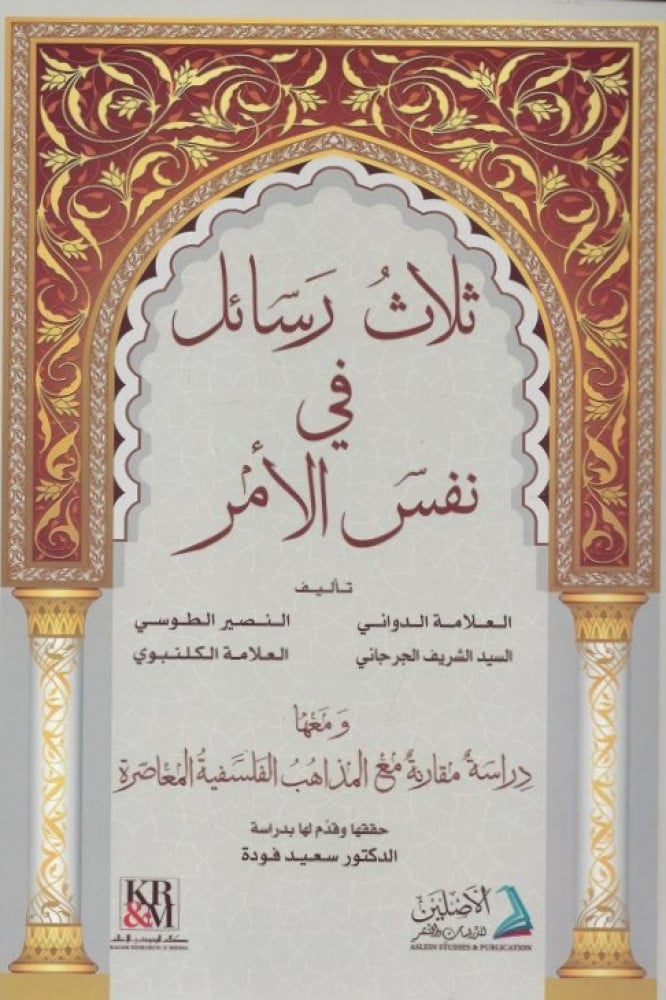 ثلاثُ رسائل
في
نفس الأمر
تأليف
العلامة الدواني النصير الطوسي
السيد الشريف الجرجاني العلامة الكلنبوي
ومعها
دراسة مقارنة مع المذاهب الفلسفية المعاصرة
حققها وقدّم لها بدراسة
الدكتور سعيد فودة
KR
&M
KALAM RESEARCH & MEDIA
الأصلين
للدراسات والنشر
ASLEIN STUDIES & PUBLICATION